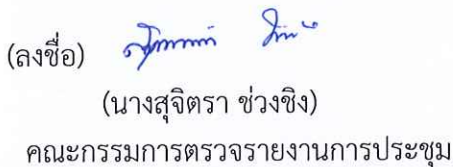 (ลงชื่อ)
(นางสุจิตรา ช่วงชิง)
คณะกรรมการตรวจรายงานการประชุม